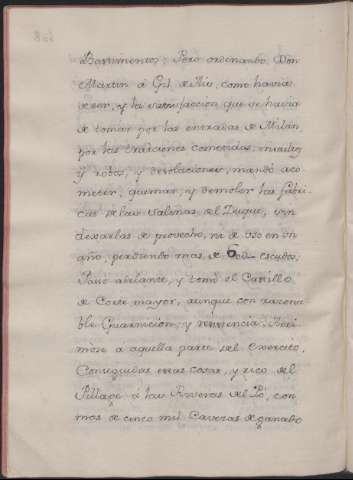 Bastimentos; Pero ordinando Don
Martin á Gil de Aís, como havia
de ser, y la satisfaccion que se havia
de tomar por las entradas de Milán,
por las traiciones cometidas, insultos
y robos, y desolaciones, mandó aco
meter, quemar, y demoler las fabri-
cas de las Salinas, del Duque, sin
dexarlas de provecho, ni de uso en un
año, perdiendo mas de 6 escudos.
Paso adelante, y tomó el Castillo
de Corte mayor, aunque con razona
ble Guarnicion, y resistencia. Arri
móse á aquella parte del Exercito,
Conseguidas estas cosas, y rico del
Pillage á las Riveras del Pó, con
mas de cinco mil Caveras de ganado